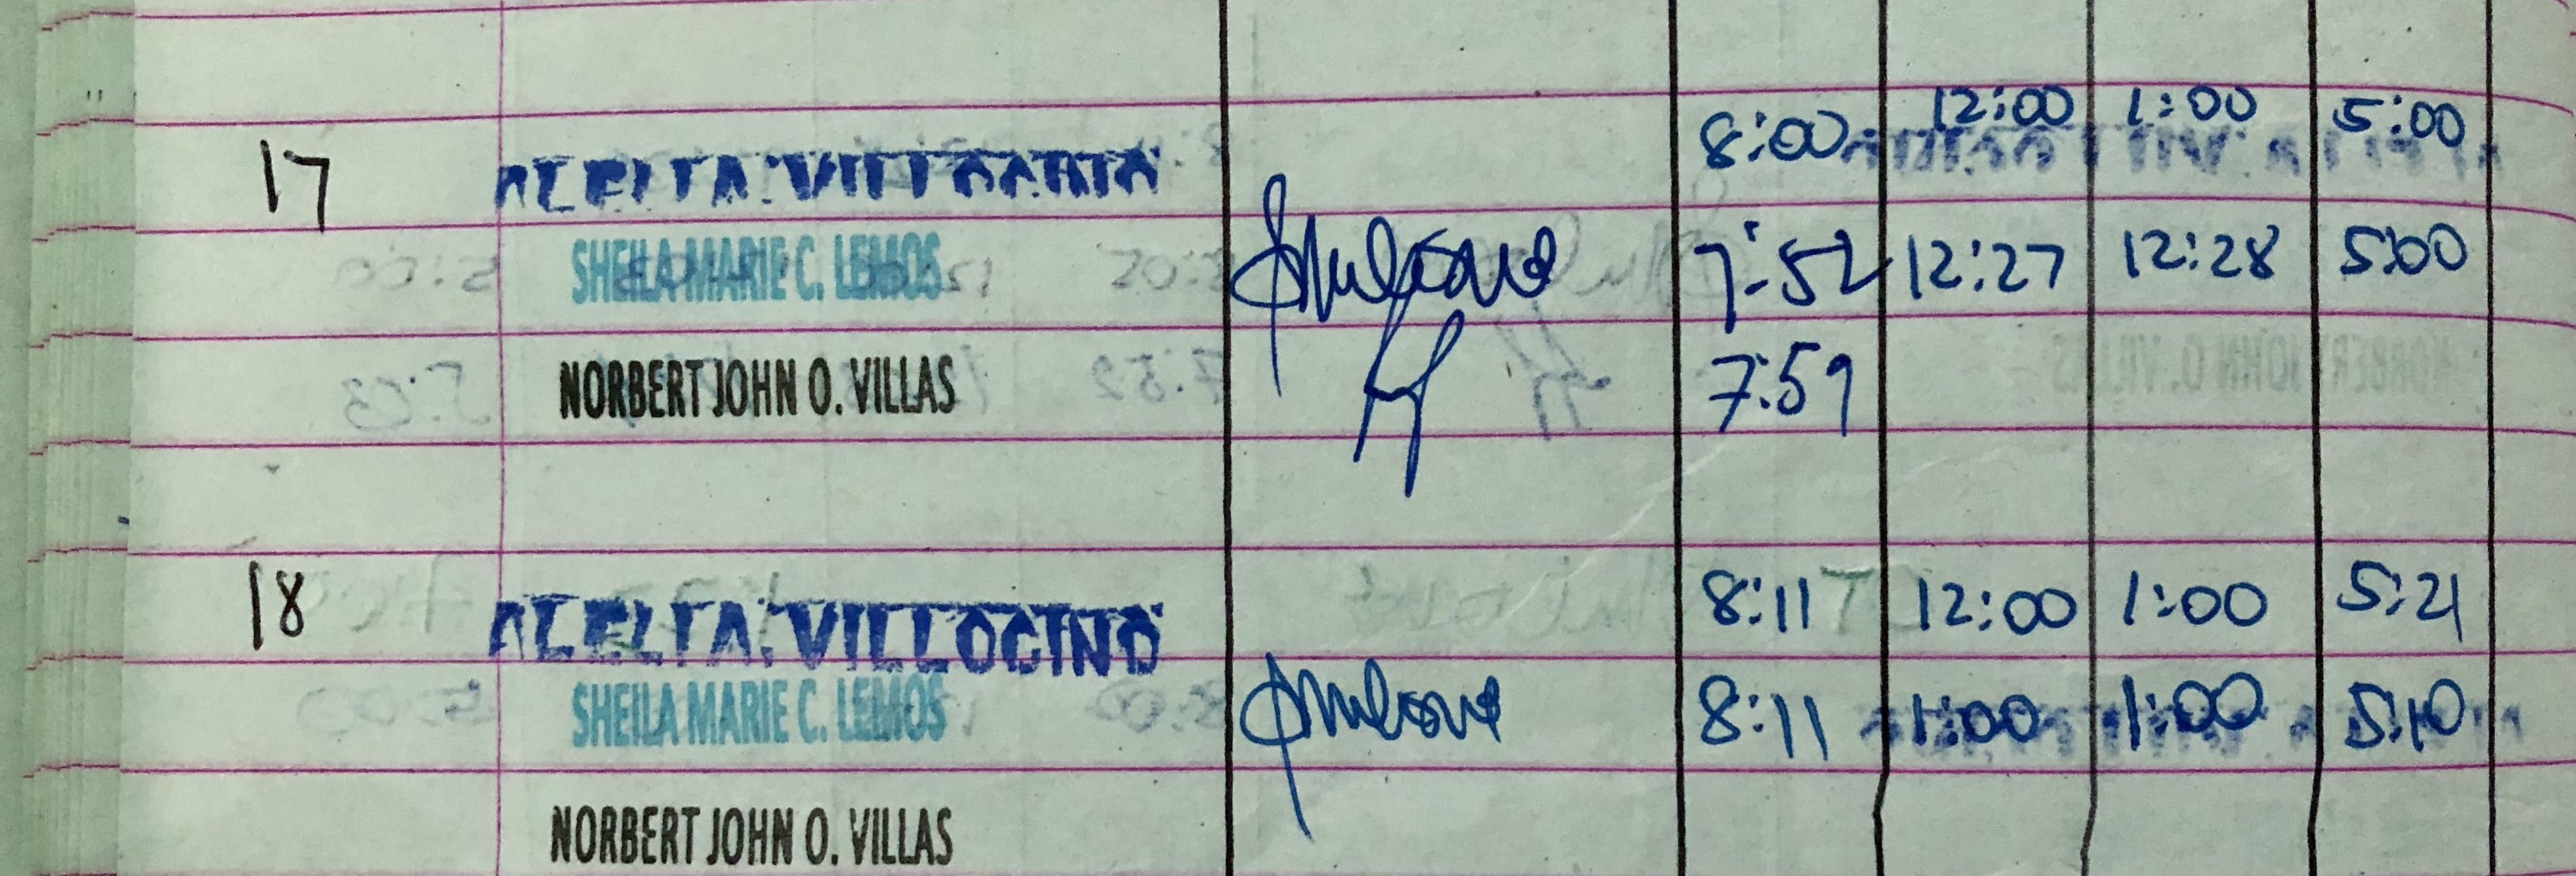 17 ALELIA VILLOCINO 8:00 12:00 1:00 5:00
SHEILA MARIE C. LEMOS 7:52 12:27 12:28 5:00
NORBERT JOHN O. VILLAS 7:59
18 ALELIA VILLOCINO 8:11 12:00 1:00 5:21
SHEILA MARIE C. LEMOS 8:11 1:00 1:00 5:10
NORBERT JOHN O. VILLAS